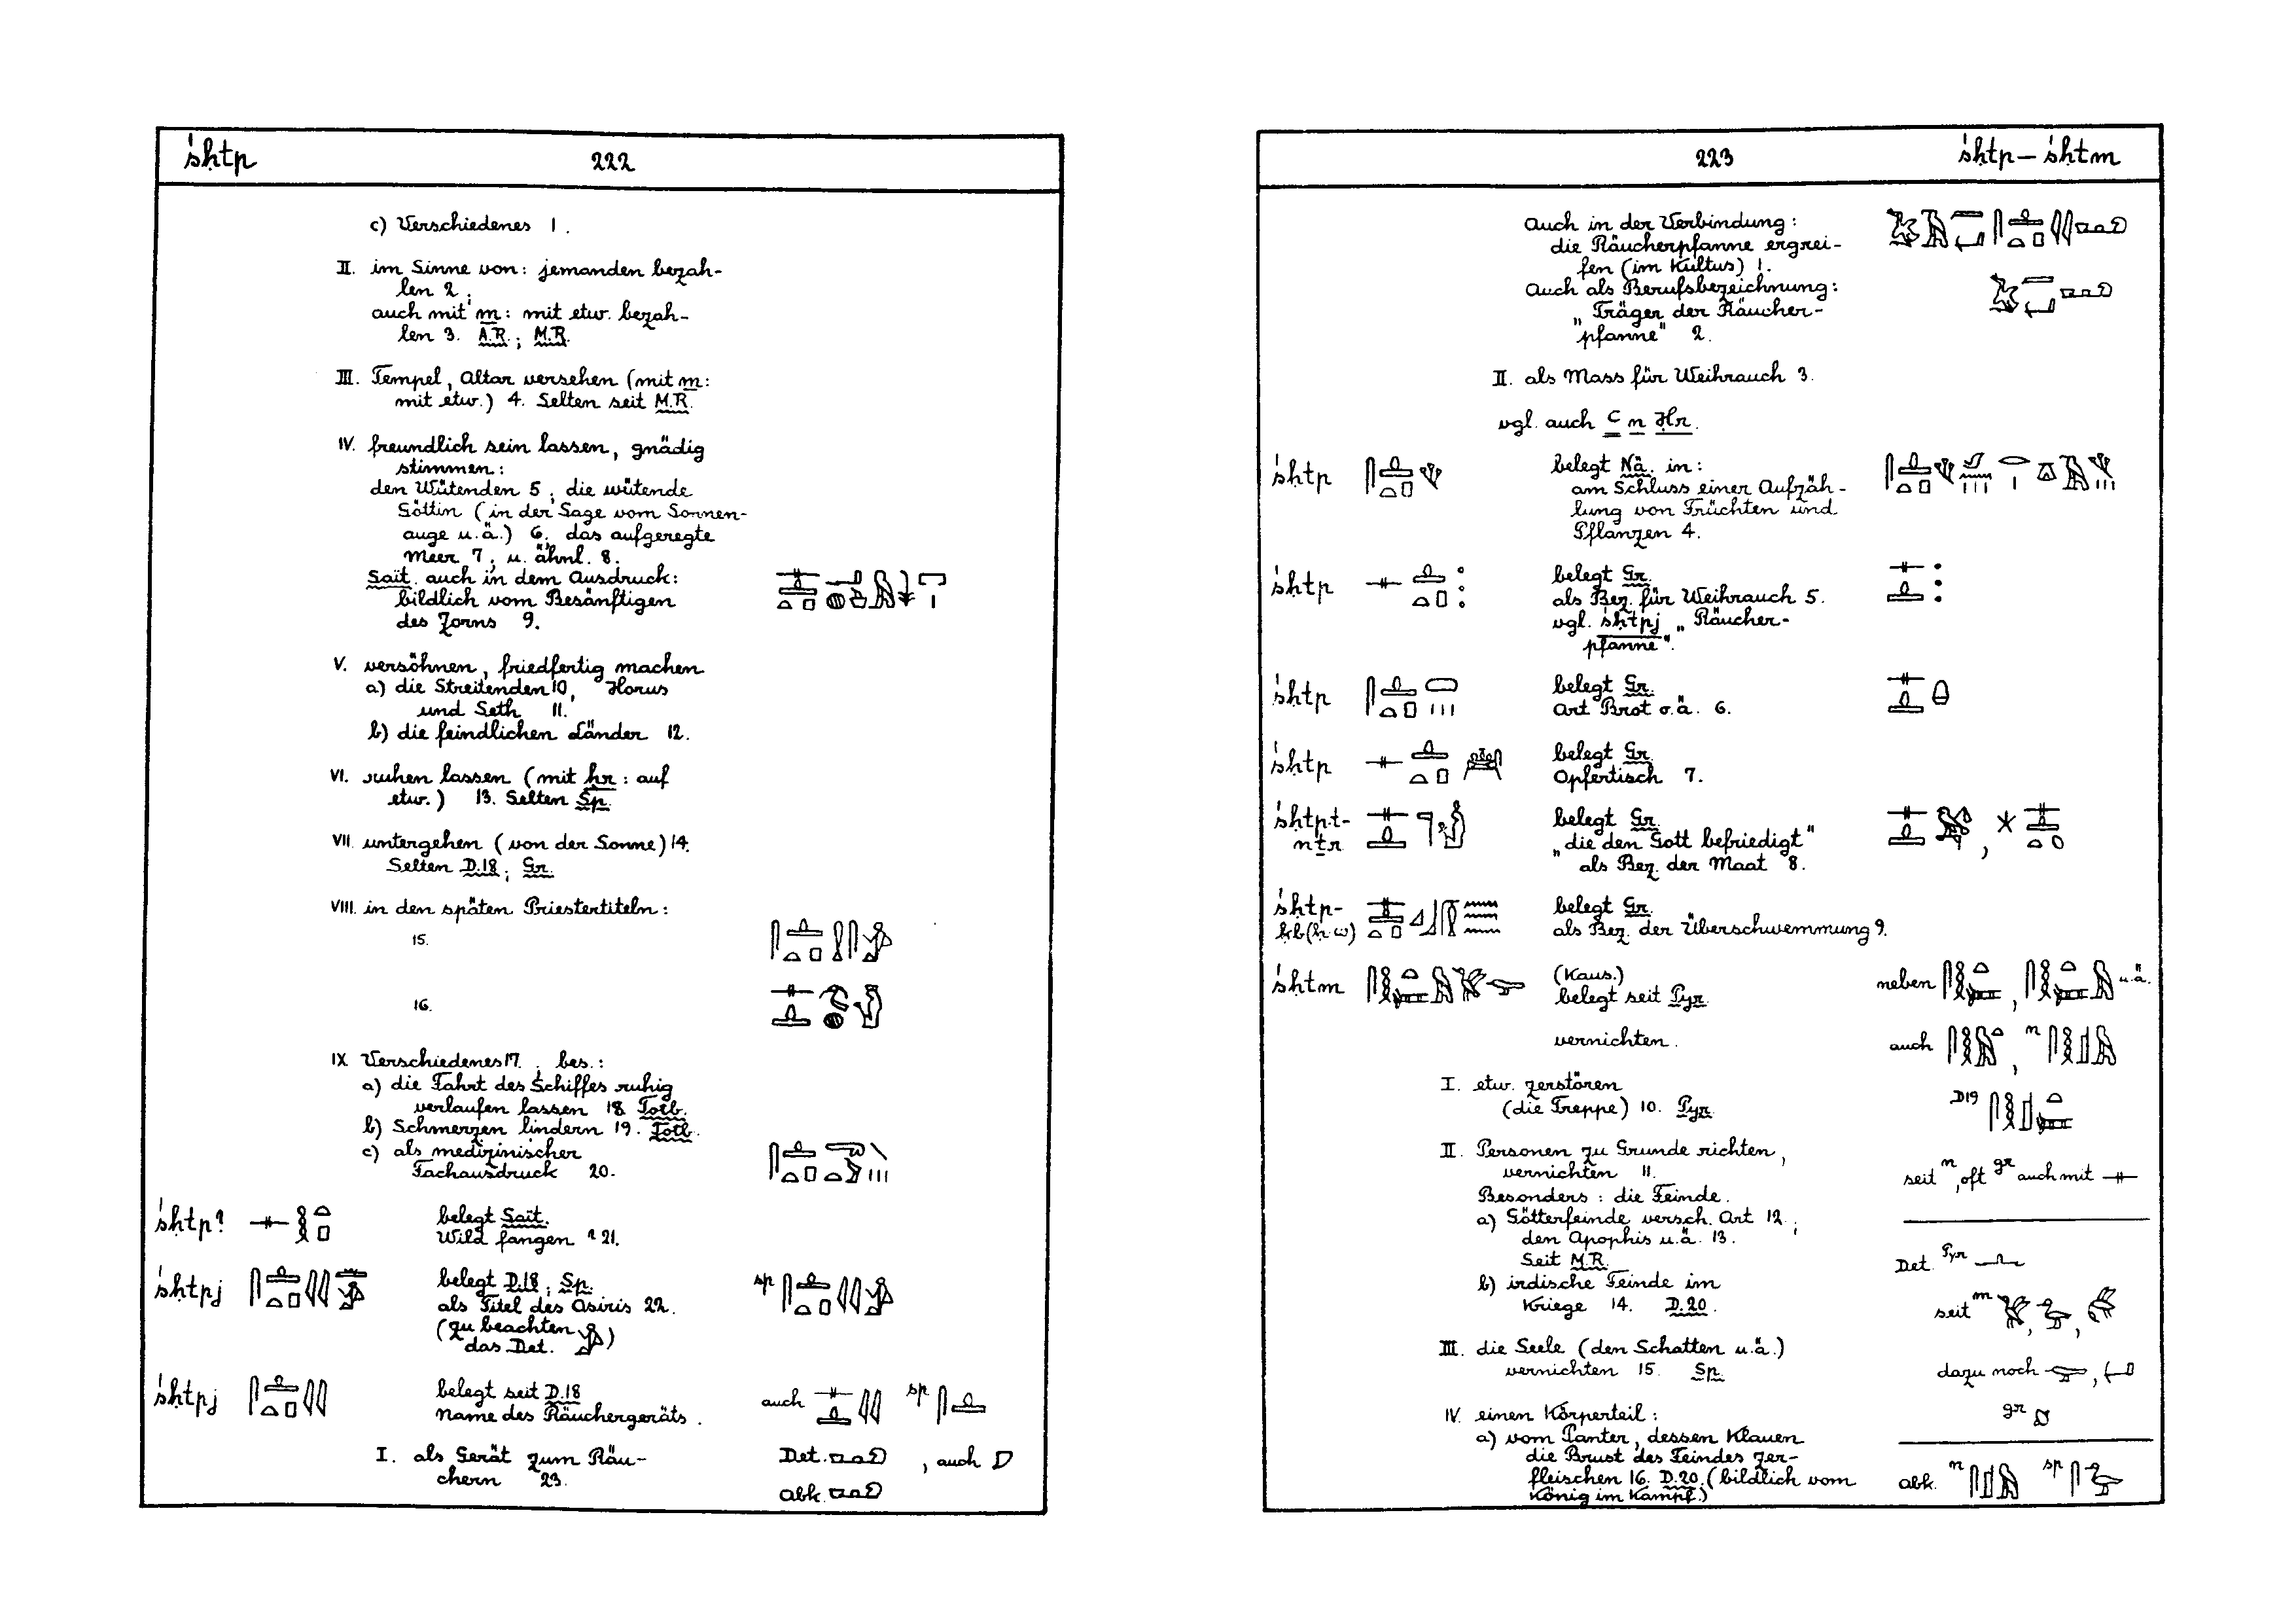 śḥtp 222
c) Verschiedenes 1.
II. im Sinne von: jemanden bezah-
len 2;
auch mit m: mit etw. bezah-
len 3. A.R.; M.R.
III. Tempel, Altar versehen (mit m:
mit etw.) 4. Selten seit M.R.
IV. freundlich sein lassen, gnädig
stimmen:
den Wütenden 5; die wütende
Göttin (in der Sage vom Sonnen-
auge u.ä.) 6; das aufgeregte
Meer 7; u. ähnl. 8.
Sait. auch in dem Ausdruck:
bildlich vom Besänftigen
des Zorns 9.
V. versöhnen, friedfertig machen
a) die Streitenden 10, Horus
und Seth 11.
b) die feindlichen Länder 12.
VI. ruhen lassen (mit ḥr: auf
etw.) 13. Selten Sp.
VII. untergehen (von der Sonne) 14.
Selten D.18; Gr.
VIII. in den späten Priestertiteln:
15.
16.
IX. Verschiedenes 17; bes.:
a) die Fahrt des Schiffes ruhig
verlaufen lassen 18. Totb.
b) Schmerzen lindern 19. Totb.
c) als medizinischer
Fachausdruck 20.
śḥtp? belegt Sait.
Wild fangen ? 21.
śḥtpj belegt D.18; Sp. sp
als Titel des Osiris 22.
(zu beachten
das Det. )
śḥtpj belegt seit D.18 auch sp
Name des Räuchergeräts.
I. als Gerät zum Räu- Det. , auch
chern 23. Abk.
223 śḥtp – śḥtm
Auch in der Verbindung:
die Räucherpfanne ergrei-
fen (im Kultus) 1.
Auch als Berufsbezeichnung:
„Träger der Räucher-
pfanne" 2.
II. als Mass für Weihrauch 3.
vgl. auch ꜥ n Ḥr.
śḥtp belegt Nä. in:
am Schluss einer Aufzäh-
lung von Früchten und
Pflanzen 4.
śḥtp belegt Gr.
als Bez. für Weihrauch 5.
vgl. śḥtpj „Räucher-
pfanne".
śḥtp belegt Gr.
Art Brot o.ä. 6.
śḥtp belegt Gr.
Opfertisch 7.
śḥtp.t- belegt Gr.
nṯr „die den Gott befriedigt"
als Bez. der Maat 8.
śḥtp- belegt Gr.
ḳb(ḥ.w) als Bez. der Überschwemmung 9.
śḥtm (Kaus.) neben , u.ä.
belegt seit Pyr.
vernichten. auch , n
I. etw. zerstören D19
(die Treppe) 10. Pyr.
II. Personen zu Grunde richten,
vernichten 11. seit n, oft gr auch mit
Besonders: die Feinde.
a) Götterfeinde versch. Art 12;
den Apophis u.ä. 13.
Seit M.R. Det. Pyr
b) irdische Feinde im
Kriege 14. D.20. seit m , ,
III. die Seele (den Schatten u.ä.)
vernichten 15. Sp. dazu noch ,
IV. einen Körperteil: gr
a) vom Panter, dessen Klauen
die Brust des Feindes zer-
fleischen 16. D.20. (bildlich vom Abk. n sp
König im Kampf.)